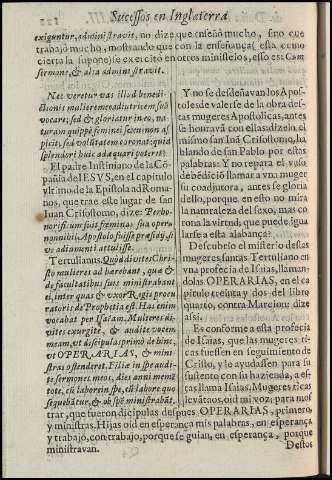 Sucessos en Inglaterra
exiguntur, administravit, no dize que enseñò mucho, sino que
trabajò mucho, mostrando que con la enseñança (esta como
cierta la supone) se exercitò en otros ministeios, esso es: Cum
sermone, & alia administravit.
Nec veretur vas illud benedi-
ctionis mulierem coadiutricem suã
vocare; sed & gloriatur in eo, na-
turam quippè feminei sexus non as-
picit, sed voluntatem coronat: quid
splendori huic adæquari poterit?
El padre Iustiniano de la Cõ-
pañia de IESVS, en el capitulo
vltimo de la Epistola ad Roma-
nos, que trae este lugar de san
Iuan Crisostomo, dize: Perho-
norificum fuit feminas sua opera
nonnihil Apostolo fuisse præsidij, si-
ve adiumenti attulisse.
Tertulianus. Quòd divites Chri-
sto mulieres adhærebant, quæ &
de facultatibus suis ministrabant
ei, inter quas & vxor Regis procu-
ratoris de Prophetia est. Has enim
vocabat per Isaiam. Mulieres di-
vites exurgite, & audite vocem
meam, vt discipulas primò dehinc,
vt OPERARIAS, & mini-
stras ostenderet. Filiæ in spe audi-
te sermones meos, dies anni memè-
tote, cũ labore in spe, cũ labore quo
sequebãtur, & ob spẽ ministrabãt.
Y no se desdeñavan los Apos-
toles de valerse de la obra des-
tas mugeres Apostolicas, antes
se honravã con ellas dizelo el
mismo san Iuã Crisostomo, ha
blando de san Pablo por estas
palabras: Y no repara el vaso
de bẽdiciõ llamar a vna muger
su coadjutora, antes se gloria
dello, porque en esto no mira
la naturaleza del sexo, mas co-
rona la virtud, que puede igua
larse a esta alabança?
Descubrelo el misterio destas
mugeres santas Tertuliano en
vna profecia de Isaias, llaman-
dolas OPERARIAS, en el ca
pitulo treinta y dos del libro
quarto, contra Marcion: dize
assi:
Es conforme a esta profecia
de Isaias, que las mugeres ri-
cas fuessen en seguimiento de
Cristo, y le ayudassen para su
sustento con su hazienda, a es-
tas llama Isaias, Mugeres ricas
levãtaos, oid mi voz: para mos
trar, que fueron dicipulas despues OPERARIAS, primero
y ministras. Hijas oid en esperança mis palabras, en esperança
y trabajo, con trabajo, porque se guian, en esperança, porque
ministravan.
Destos